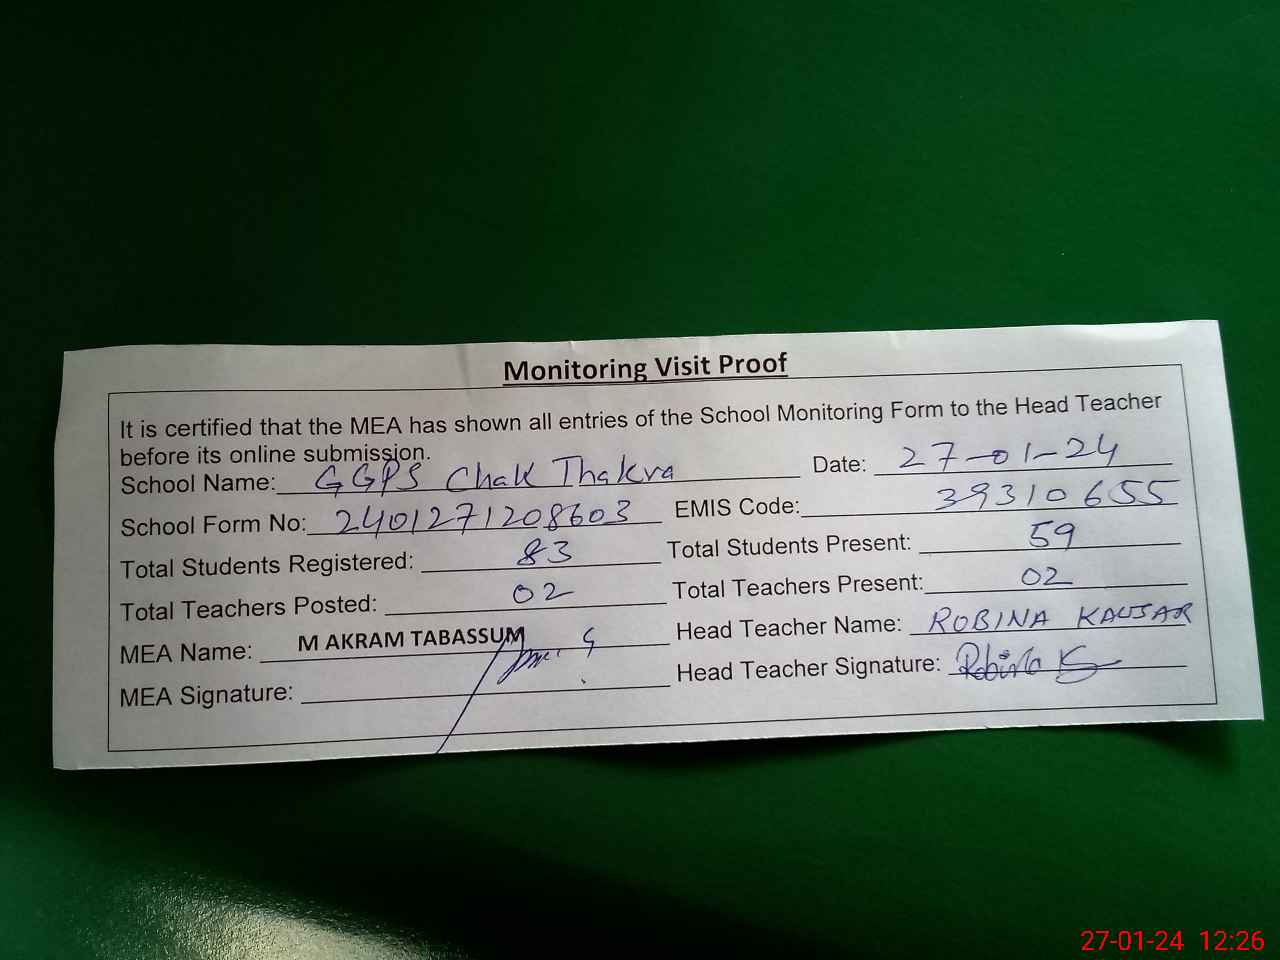 Monitoring Visit Proof
It is certified that the MEA has shown all entries of the School Monitoring Form to the Head Teacher
before its online submission.
School Name: GGPS Chak Thakra Date: 27-01-24
School Form No: 2401271208603 EMIS Code: 39310655
Total Students Registered: 83 Total Students Present: 59
Total Teachers Posted: 02 Total Teachers Present: 02
MEA Name: M AKRAM TABASSUM Head Teacher Name: ROBINA KAUSAR
MEA Signature: Head Teacher Signature: Robina K
27-01-24 12:26